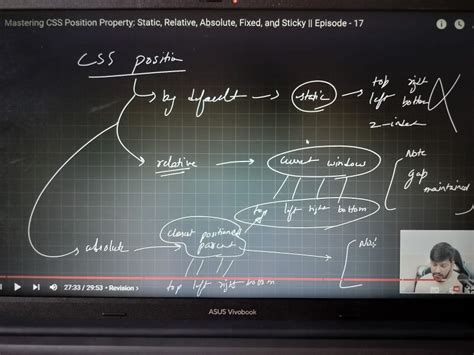 Mastering CSS Position Property: Static, Relative, Absolute, Fixed, and Sticky || Episode - 17
CSS position
by default static top right
left bottom
z-index
relative current window
Note
gap
maintained
top left right bottom
absolute closest positioned
parent
top left right bottom
27:33 / 29:53 • Revision >
ASUS Vivobook